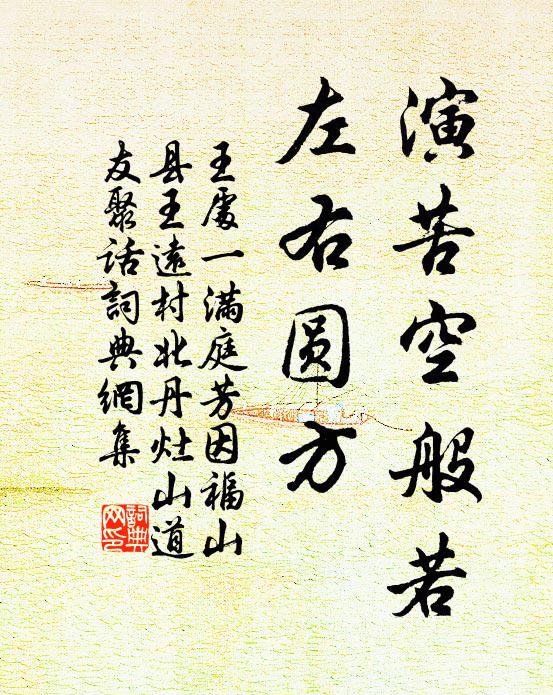 演苦空般若
左右圆方
王處一满庭芳因福山
县王遠村北丹灶山道
友聚话詞典網集
詞典
网印